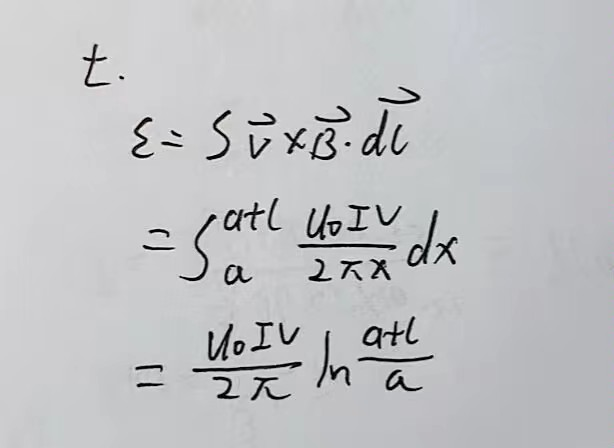 t.
ε = ∫ v⃗ × B⃗ · dl⃗
= ∫ₐᵃ⁺ˡ (μ₀IV / 2πx) dx
= (μ₀IV / 2π) ln ((a+l) / a)